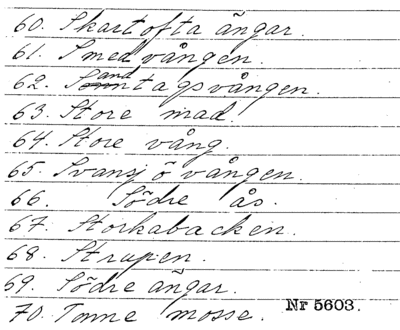 60. Skartofta ängar.
61. Smedvången.
62. Sandtagsvången.
63. Store mad.
64. Store vång.
65. Svansjövången.
66. Södre ås.
67. Storkabacken.
68. Strupen.
69. Södre ängar.
70. Tonne mosse. Nr 5603.